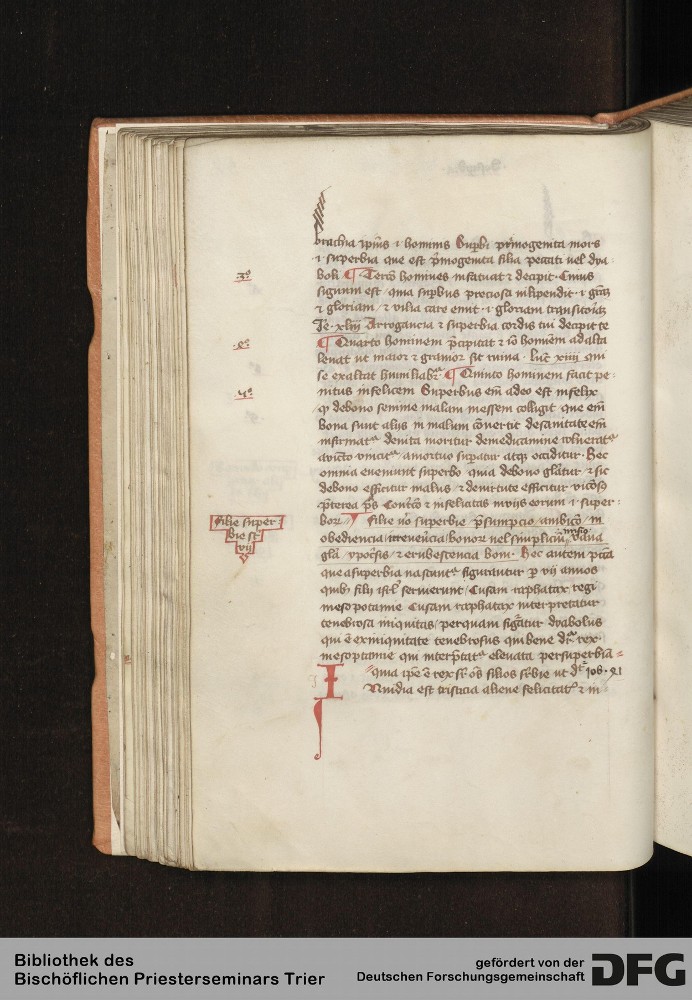 brachia ipius i hominis Supbi primogenita mors
i superbia que est pmogenita filia peccati uel dya
boli ¶ Tercio homines infatuat ⁊ decipit · Cuius
signum est / quia supbus preciosa vilipendit · i
⁊ gloriam / ⁊ vilia care emit · i gloriam transitoria
Je · xliii Arrogancia ⁊ superbia cordis tui decipit te
¶ Quarto hominem pcipitat ⁊ io hominem
leuat ut maior ⁊ grauior sit ruina · luc xiiii
se exaltat humiliabr ¶ Quinto hominem facit pe
nitus infelicem Superbus em adeo est infelix
q de bono semine malam messem colligit que em
bona sunt alijs in malum conuertit de sanitate em
infirmatr de uita moritur de medicamine vulneratr
a victo vincitr / a mortuo supatur atq occiditur · Hec
omnia eueniunt superbo quia de bono ⁊ sic
de bono efficitur malus / ⁊ de uirtute efficitur
pterea ps ⁊ infelicitas in vijs eorum i super
bor / ¶ filie uo superbie psumpcio ambico in
obediencia irreuencia honor
gla ypocsis / ⁊ erubescencia boni · Hec autem pcca
que a superbia nascuntr figurantur p vij annos
quib filij isrl seruierunt / Cusam raphatax regi
mesopotamie Cusam raphatax interpretatur
tenebrosa iniquitas / per quam figatur dyabolus
qui e ex iniquitate tenebrosus qui bene dr rex
mesopotamie qui interptatr eleuata per superbia
quia ipe e rex sr os filios srbie ut dr iob · 41
INuidia est tristicia aliene felicitatis ⁊ in
3º
4º
5º
filie super
bie st
vij
Bibliothek des
Bischöflichen Priesterseminars Trier
gefördert von der
Deutschen Forschungsgemeinschaft
DFG